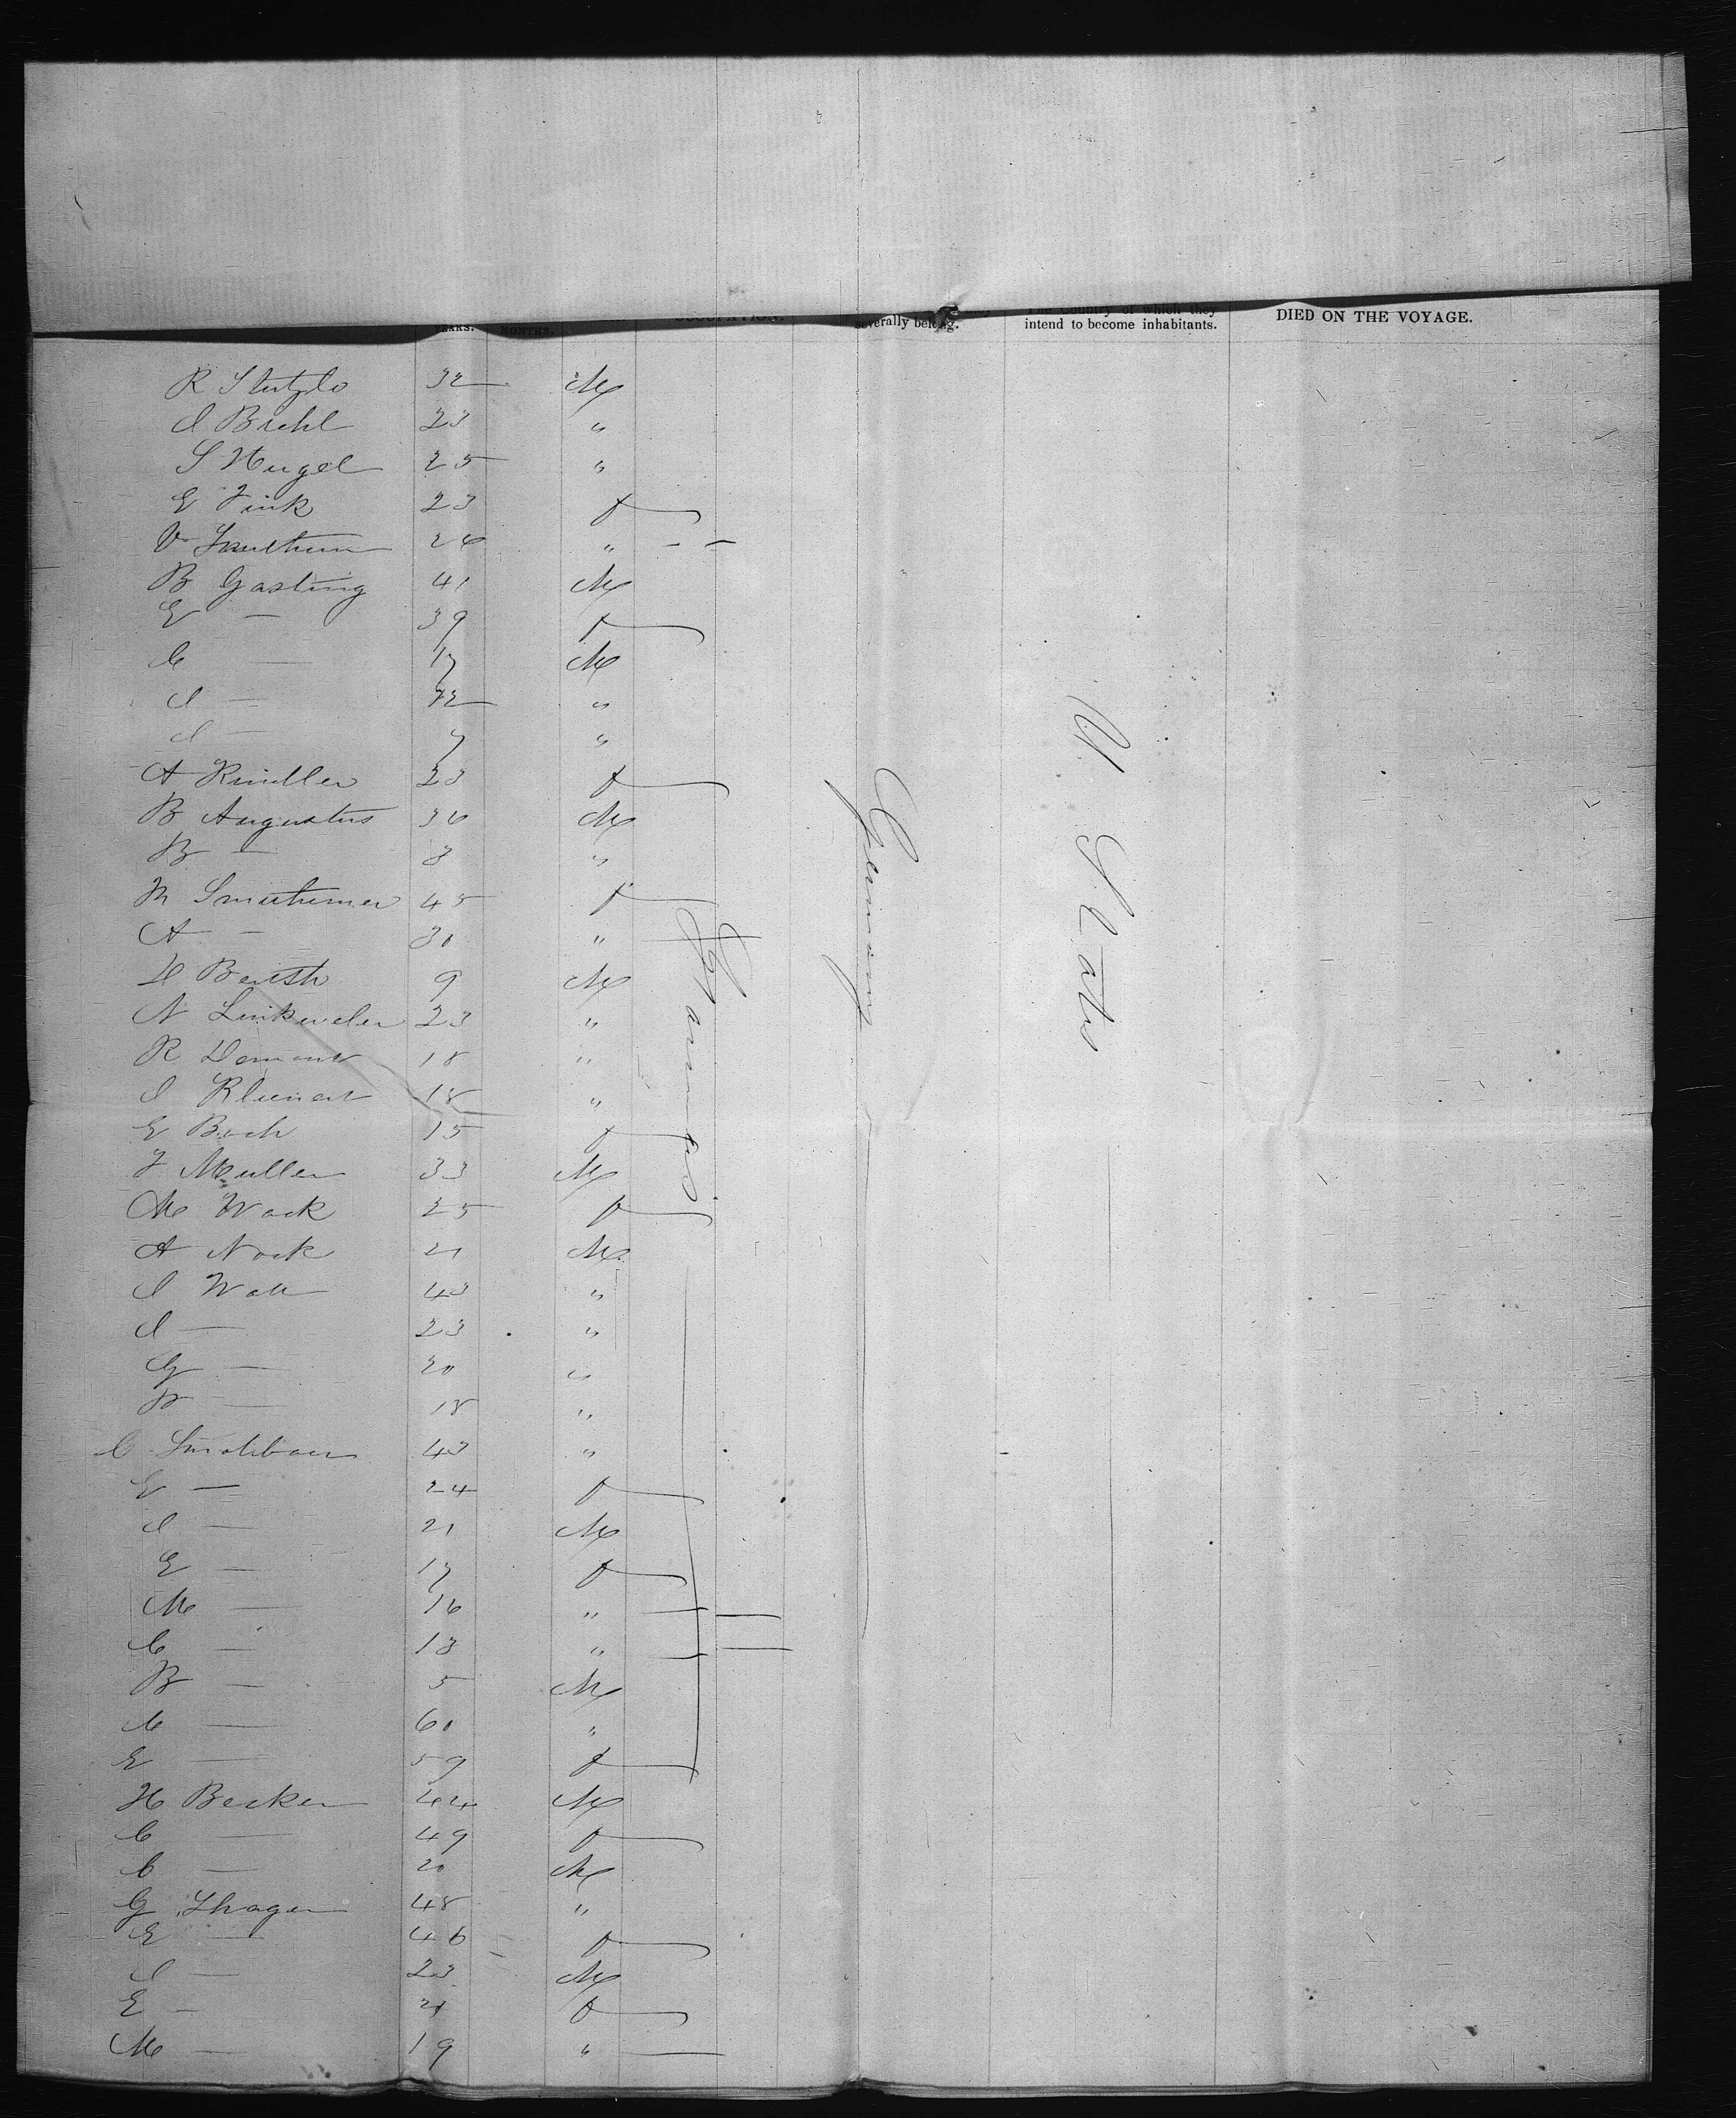 YEARS. MONTHS. OCCUPATION. severally belong. the Country of which they intend to become inhabitants. DIED ON THE VOYAGE.
R Stutzlo 32 M
I Biehl 23 "
S Hugel 25 "
E Fink 23 f
V 26 "
B Gasting 41 M
E — 39 f
C — 17 M
I — 12 "
I — 7 "
A Kindler 23 f
B Augustus 36 M
B — 3 "
M 45 f
A — 30 "
H Beisth 9 M
N Linkweler 23 "
R Demant 18 "
I Klienert 18 "
E Boch 15 f
F Muller 33 M
M Wack 25 f
A Nock 21 M
I Wall 43 "
I — 23 "
G — 20 "
B — 18 "
C 43 "
E — 24 f
I — 21 M
E — 17 f
M — 16 "
C — 13 "
B — 5 M
C — 60 "
E — 59 f
H Becker 44 M
C — 49 f
C — 20 M
G Shager 48 "
E — 46 f
I — 23 M
E — 21 f
M — 19 "
Farmers
Germany
U. States